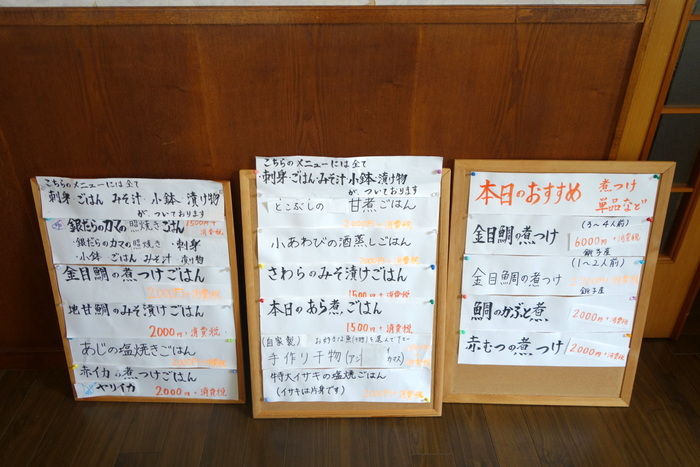 こちらのメニューには全て
刺身 ごはん みそ汁 小鉢 漬け物
が、ついております
銀だらのカマの照焼き ごはん 1500円+消費税
・銀だらのカマの照焼き ・刺身
・小鉢 ごはん みそ汁 漬け物
金目鯛の煮つけごはん
2000円+消費税
地甘鯛のみそ漬けごはん
2000円+消費税
あじの塩焼きごはん
2000円+消費税
赤イカの煮つけごはん
ヤリイカ 2000円+消費税
こちらのメニューには全て
・刺身・ごはん・みそ汁・小鉢・漬け物
が、ついております
とこぶしの 甘煮ごはん
2000円+消費税
小あわびの酒蒸しごはん
2000円+消費税
さわらのみそ漬けごはん
1500円+消費税
本日のあら煮、ごはん
1500円+消費税
(自家製)
手作り干物(アジ カマス)
特大イサキの塩焼ごはん
(イサキは片身です) 2000円+消費税
本日のおすすめ 煮つけ
単品など
金目鯛の煮つけ (3〜4人前)
6000円+消費税
銚子産
金目鯛の煮つけ (1〜2人前)
銚子産
鯛のかぶと煮 2000円+消費税
赤むつの煮つけ 2000円+消費税